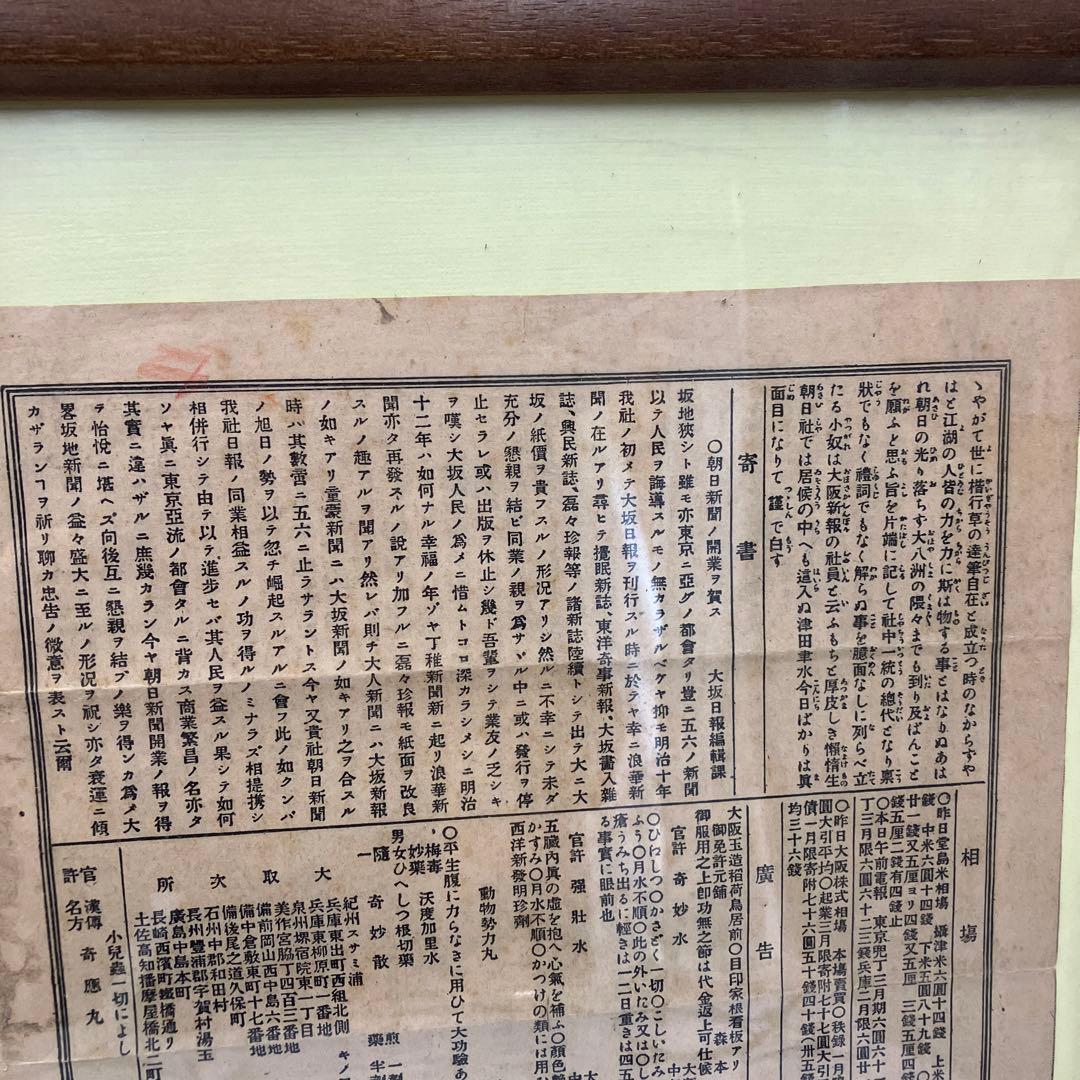 ゝやがて世に楷行草の達筆自在と成立つ時のなからずや
はと江湖の人皆の力を力に斯は物する事とはなりぬあは
れ朝日の光り落らす大八洲の隈々までも到り及ばんこと
を願ふと思ふ旨を片端に記して社中一統の總代となり禀
狀でもなく禮詞でもなく解らぬ事を臆面なしに列らべ立
たる小奴は大阪新報の社員と云ふもちと厚皮しき懶惰生
朝日社では居候の中へも這入ぬ津田聿水今日ばかりは眞
面目になりて謹で白す
寄書
〇朝日新聞ノ開業ヲ賀ス 大坂日報編輯課
坂地狹シト雖モ亦東京ニ亞グノ都會タリ豈ニ五六ノ新聞
以テ人民ヲ誨導スルモノ無カラザルベケヤ抑モ明治十年
我社ノ初メテ大坂日報ヲ刊行スル時ニ於テヤ幸ニ浪華新
聞ノ在ルアリ尋ヒテ攪眠新誌、東洋奇事新報、大坂畵入雜
誌、興民新誌、磊々珍報等ノ諸新誌陸續トシテ出テ大ニ大
坂ノ紙價ヲ貴フスルノ形况アリシ然ルニ不幸ニシテ未ダ
充分ノ懇親ヲ結ビ同業ノ親ヲ爲サヾル中ニ或ハ發行ヲ停
止セラレ或ハ出版ヲ休止シ幾ド吾輩ヲシテ業友ノ乏シキ
ヲ嘆シ大坂人民ノ爲メニ惜ムトコロ深カラシメシニ明治
十二年ハ如何ナル幸福ノ年ゾヤ丁稚新聞新ニ起リ浪華新
聞亦タ再發スルノ說アリ加フルニ磊々珍報モ紙面ヲ改良
スルノ趣アルヲ聞アリ然レバ則チ大人新聞ニハ大坂新報
ノ如キアリ童豪新聞ニハ大坂新聞ノ如キアリ之ヲ合スル
時ハ其數啻ニ五六ニ止ラサラントス今ヤ又貴社朝日新聞
ノ旭日ノ勢ヲ以テ忽チ崛起スルアルニ會フ此ノ如クンバ
我社日報ノ同業相益スルノ功ヲ得ルノミナラズ相提携シ
相併行シテ由テ以テ進步セバ其人民ヲ益スル果シテ如何
ソヤ眞ニ東京亞流ノ都會タルニ背カス商業繁昌ノ名亦タ
其實ニ違ハザルニ庶幾カラン今ヤ朝日新聞開業ノ報ヲ得
テ怡悅ニ堪ヘズ向後互ニ懇親ヲ結ブノ樂ヲ得ンカ爲メ大
畧坂地新聞ノ益々盛大ニ至ルノ形况ヲ祝シ亦タ衰運ニ傾
カザランヿヲ祈リ聊カ忠告ノ微意ヲ表スト云爾
相塲
〇昨日堂島米相塲 攝津米六圓十四錢 上米
錢 中米六圓十四錢 下米五圓八十九錢
廿一錢又五厘ヨリ四錢又五厘 三錢五厘四錢
錢五厘二錢有四錢止
〇本日午前電報 東京兜丁三月期六圓六十
丁三月限六圓六十二三錢兵庫二月限六圓廿
〇昨日大阪株式相塲 本塲賣買〇秩錄一月
圓大引平均〇起業三月限寄附七十七圓大引
債一月限寄附七十六圓五十四錢(卅五錢
均三十六錢
廣告
大阪玉造稲荷鳥居前〇目印家根看板アリ
御免許元舖 森本
御服用之上卽功無之節は代金返上可仕候
官許 奇妙水
〇ひねしつ〇かさどく一切〇こしいたみ
ふう〇月水不順〇此の外いたみ又は〇し
瘡うみち出るに輕きは一二日重きは四五
る事實に眼前也
官許 强壯水
五臟內眞の虛を抱へ心氣を補ふ〇顏色
かすみ〇月水不順〇かつけの類には用ひ
西洋新發明珍劑
動物勢力丸
〇平生腹に力らなきに用ひて大功驗あ
梅毒妙藥 沃度加里水
男女ひへしつ根切藥
一隨 奇妙散
大取次所
紀州スサミ浦
兵庫東出町西組北側
兵庫東柳原町一番地
美作宮脇丁四百三番地
泉州堺宿院東一丁目
備前岡山西中島六番地
備中倉敷東町十七番地
備後尾之道久保町
石州中郡和田村
長州豐浦郡宇賀村湯玉
廣島中島本町
長崎西濱町鐵橋通り
土佐高知播磨屋橋北二町
小兒蟲一切によし
官許 漢傳名方 奇應丸